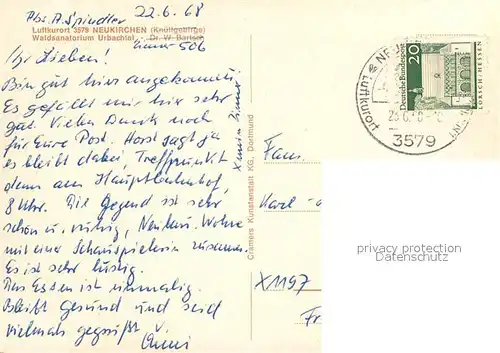 Abs. A. Spindler 22.6.68
Luftkurort 3579 NEUKIRCHEN (Knüllgebirge)
Waldsanatorium Urbachtal · Dr. W. Bartsch
Zimmer 506
Ihr Lieben!
Bin gut hier angekommen.
Es gefällt mir hier sehr
gut. Vielen Dank noch
für Eure Post. Horst sagt ja
es bleibt dabei, Treffpunkt
dann am Hauptbahnhof,
8 Uhr. Die Gegend ist sehr
schön u. ruhig, Neubau. Wohne
mit einer Schauspielerin zusammen.
Es ist sehr lustig.
Das Essen ist einmalig.
Bleibt gesund und seid
vielmals gegrüßt v.
Anni
x mein Zimmer
Cramers Kunstanstalt KG, Dortmund
Fam.
Karl
X 1197
Fr
Luftkurort
3579
20
Deutsche Bundespost
LORSCH · HESSEN
privacy protection
Datenschutz